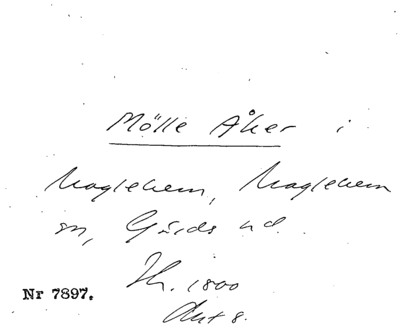 Mölle Åker i
Maglehem, Maglehem
sn, Gärds hd.
Sk. 1800
Akt 8.
Nr 7897.